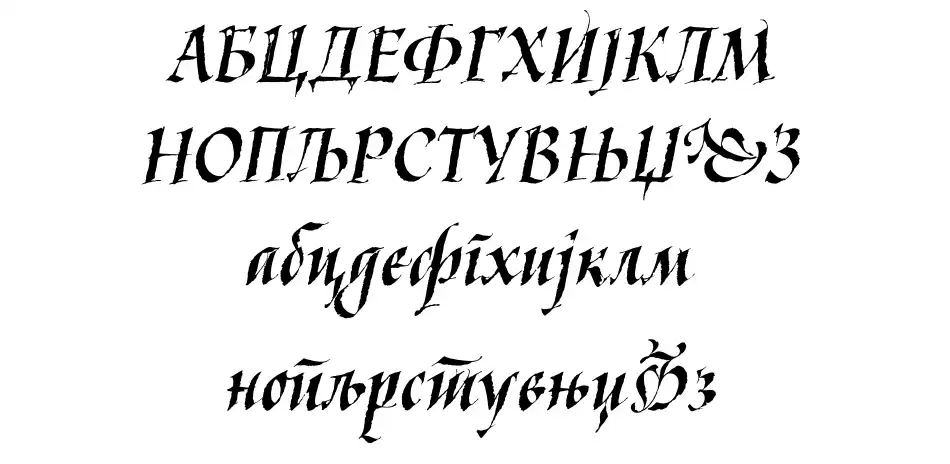 АБЦДЕФГХИЈКЛМ
НОПЉРСТУВЊЏ&З
абцдефгхијклм
нопљрстувњџ